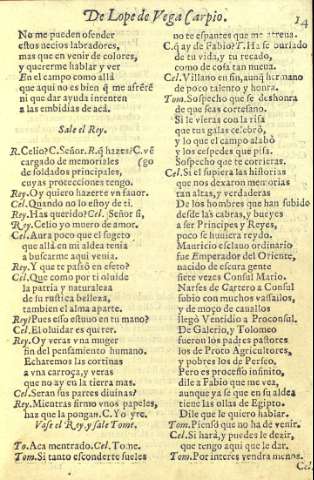 De Lope de Vega Carpio.
14
No me pueden ofender
estos necios labradores,
mas que en venir de colores,
y quererme hablar y ver
En el campo como allá
que aqui no es bien q̃ me afrẽtẽ
ni que dar ayuda intenten
a las embidias de acá.
Sale el Rey.
R. Celio? C. Señor. R. q̃ hazes? C. vẽ
cargado de memoriales (go
de soldados principales,
cuyas protecciones tengo.
Rey. Oy quiero hazerte vn fauor.
Cel. Quando no lo estoy de ti.
Rey. Has querido? Cel. Señor si,
Rey. Celio yo muero de amor.
Cel. Aura poco que el sugeto
que allá en mi aldea tenia
a buscarme aqui venia.
Rey. Y que te passó en efeto?
Cel. Que como por ti oluida
la patria y naturaleza
de su rustica belleza,
tambien el alma aparte.
Rey. Pues esso estuuo en tu mano?
Cel. El oluidar es querer.
Rey. Oy veras vna muger
fin del pensamiento humano.
Echaremos las cortinas
a vna carroça, y veras
que no ay en la tierra mas.
Cel. Seran sus partes diuinas?
Rey. Mientras firmo vnos papeles,
haz que la pongan. C. Yo yrè.
Vase el Rey, y sale Tome.
To. Aca mentrado. Cel. Tome.
Tom. Si tanto esconderte sueles
no te espantes que me atreua.
C. q̃ ay de Fabio? T. Ha se burlado
de tu vida, y tu recado,
como de cosa tan nueua.
Cel. Villano en fin, aunq̃ hermano
de poco talento y honra.
Tom. Sospecho que se deshonra
de que seas cortesano.
Si le vieras con la risa
que tus galas celebró,
y lo que el campo alabò
y los cespedes que pisa.
Sospecho que te corrieras.
Cel. Si el supiera las historias
que nos dexaron memorias
tan altas, y verdaderas
De los hombres que han subido
desde las cabras, y bueyes
a ser Principes y Reyes,
poco se huuiera reydo.
Mauricio esclauo ordinario
fue Emperador del Oriente,
nacido de escura gente
siete vezes Consul Mario.
Narses de Cartero a Consul
subio con muchos vassallos,
y de moço de cauallos
llegò Ventidio a Proconsul.
De Galerio, y Tolomeo
fueron los padres pastores
los de Proco Agricultores,
y pobres los de Perseo.
Pero es processo infinito,
dile a Fabio que me vea,
aunque ya se que en su aldea
tiene las ollas de Egipto.
Dile que le quiero hablar.
Tom. Pienso que no ha de venir.
Cel. Si hará, y puedes le dezir,
que tengo aqui que le dar.
Tom. Por interes vendra menos.
Cel.